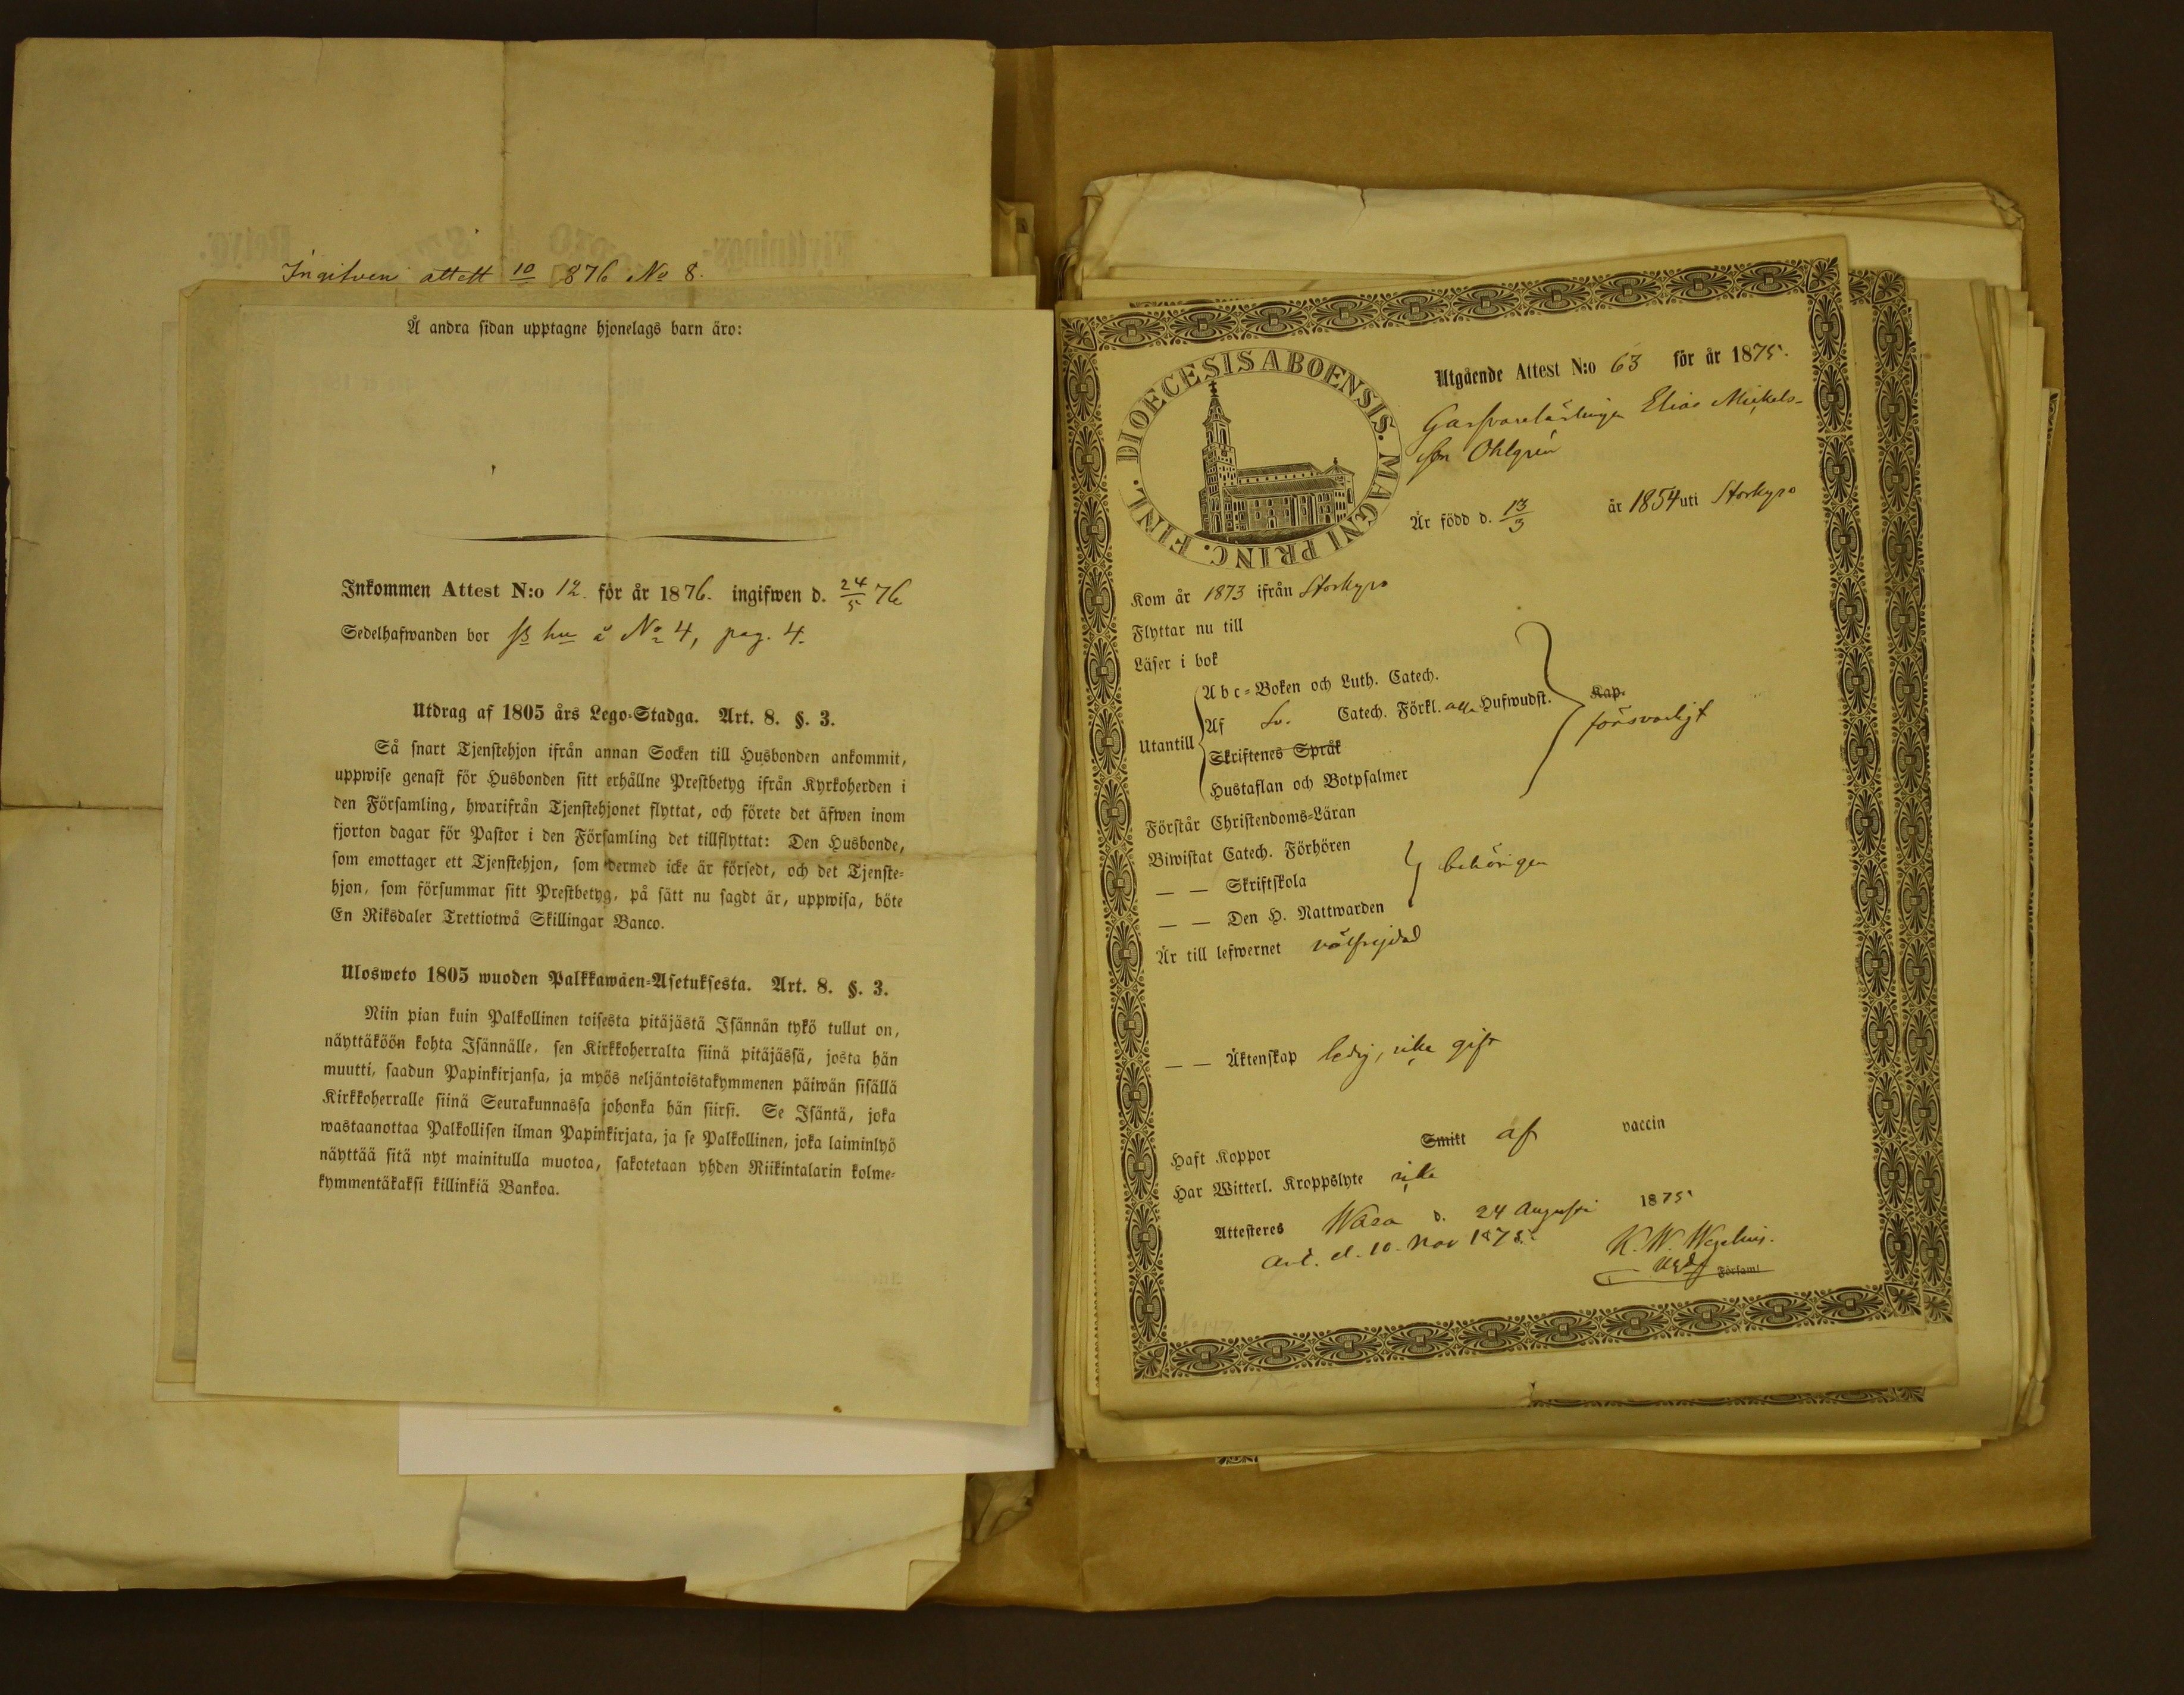 Ingifven attest 10 876 No 8.
Å andra sidan upptagne hjonelags barn äro:
Inkommen Attest N:o 12. för år 1876. ingifwen d. 24/5 76
Sedelhafwanden bor å No 4, pag. 4.
Utdrag af 1805 års Lego-Stadga. Art. 8. §. 3.
Så snart Tjenstehjon ifrån annan Socken till Husbonden ankommit,
uppwise genast för Husbonden sitt erhållne Prestbetyg ifrån Kyrkoherden i
den Församling, hwarifrån Tjenstehjonet flyttat, och förete det äfwen inom
fjorton dagar för Pastor i den Församling det tillflyttat: Den Husbonde,
som emottager ett Tjenstehjon, som dermed icke är försedt, och det Tjenste-
hjon, som försummar sitt Prestbetyg, på sätt nu sagdt är, uppwisa, böte
En Riksdaler Trettiotwå Skillingar Banco.
Ulosweto 1805 wuoden Palkkawäen-Asetuksesta. Art. 8. §. 3.
Niin pian kuin Palkollinen toisesta pitäjästä Isännän tykö tullut on,
näyttäköön kohta Isännälle, sen Kirkkoherralta siinä pitäjässä, josta hän
muutti, saadun Papinkirjansa, ja myös neljäntoistakymmenen päiwän sisällä
Kirkkoherralle siinä Seurakunnassa johonka hän siirsi. Se Isäntä, joka
wastaanottaa Palkollisen ilman Papinkirjata, ja se Palkollinen, joka laiminlyö
näyttää sitä nyt mainitulla muotoa, sakotetaan yhden Riikintalarin kolme-
kymmentäkaksi killinkiä Bankoa.
DIOECESIS ABOENSIS. MAGNI PRINC. FINL.
Utgående Attest N:o 63 för år 1875.
Garfvarelärlingen Elias Mickels-
son Ohlgrén
Är född d. 13/3 år 1854 uti Storkyro
Kom år 1873 ifrån Storkyro
Flyttar nu till
Läser i bok
Utantill
Abc-Boken och Luth. Catech.
Af Sv. Catech. Förkl. alla Hufwudst.
Skriftenes Språk
Hustaflan och Botpsalmer
Kap.
försvarligt
Förstår Christendoms-Läran
Biwistat Catech. Förhören
— — Skriftskola
— — Den H. Nattwarden
behörigen
Är till lefwernet välfrejdad
— — Äktenskap ledig, icke gift
Haft Koppor Smitt af vaccin
Har Witterl. Kroppslyte icke
Attesteres Wasa d. 24 Augusti 1875
d. 10. Nov 1875.
K. W. Wegelius.
Församl